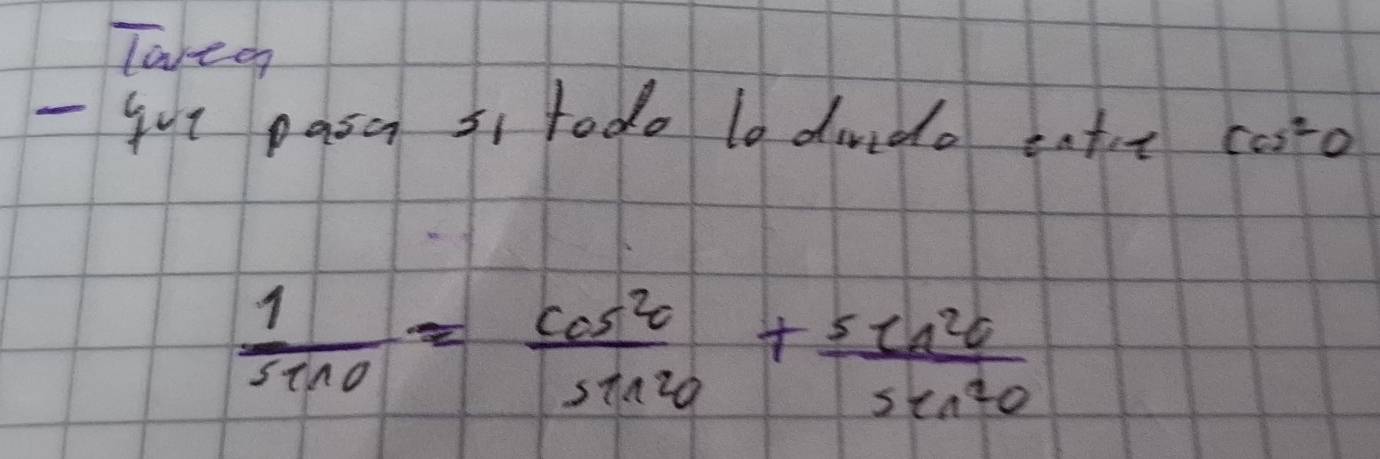 Tarea
- que pasa si todo lo divido entre cos²θ
1/senθ = cos²θ/sen²θ + sen²θ/sen²θ